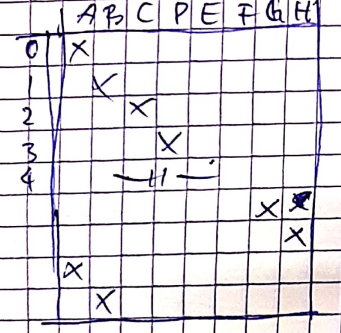 A B C D E F G H
0 X
1 X
2 X
3 X
4 —11—
X
X
X
X